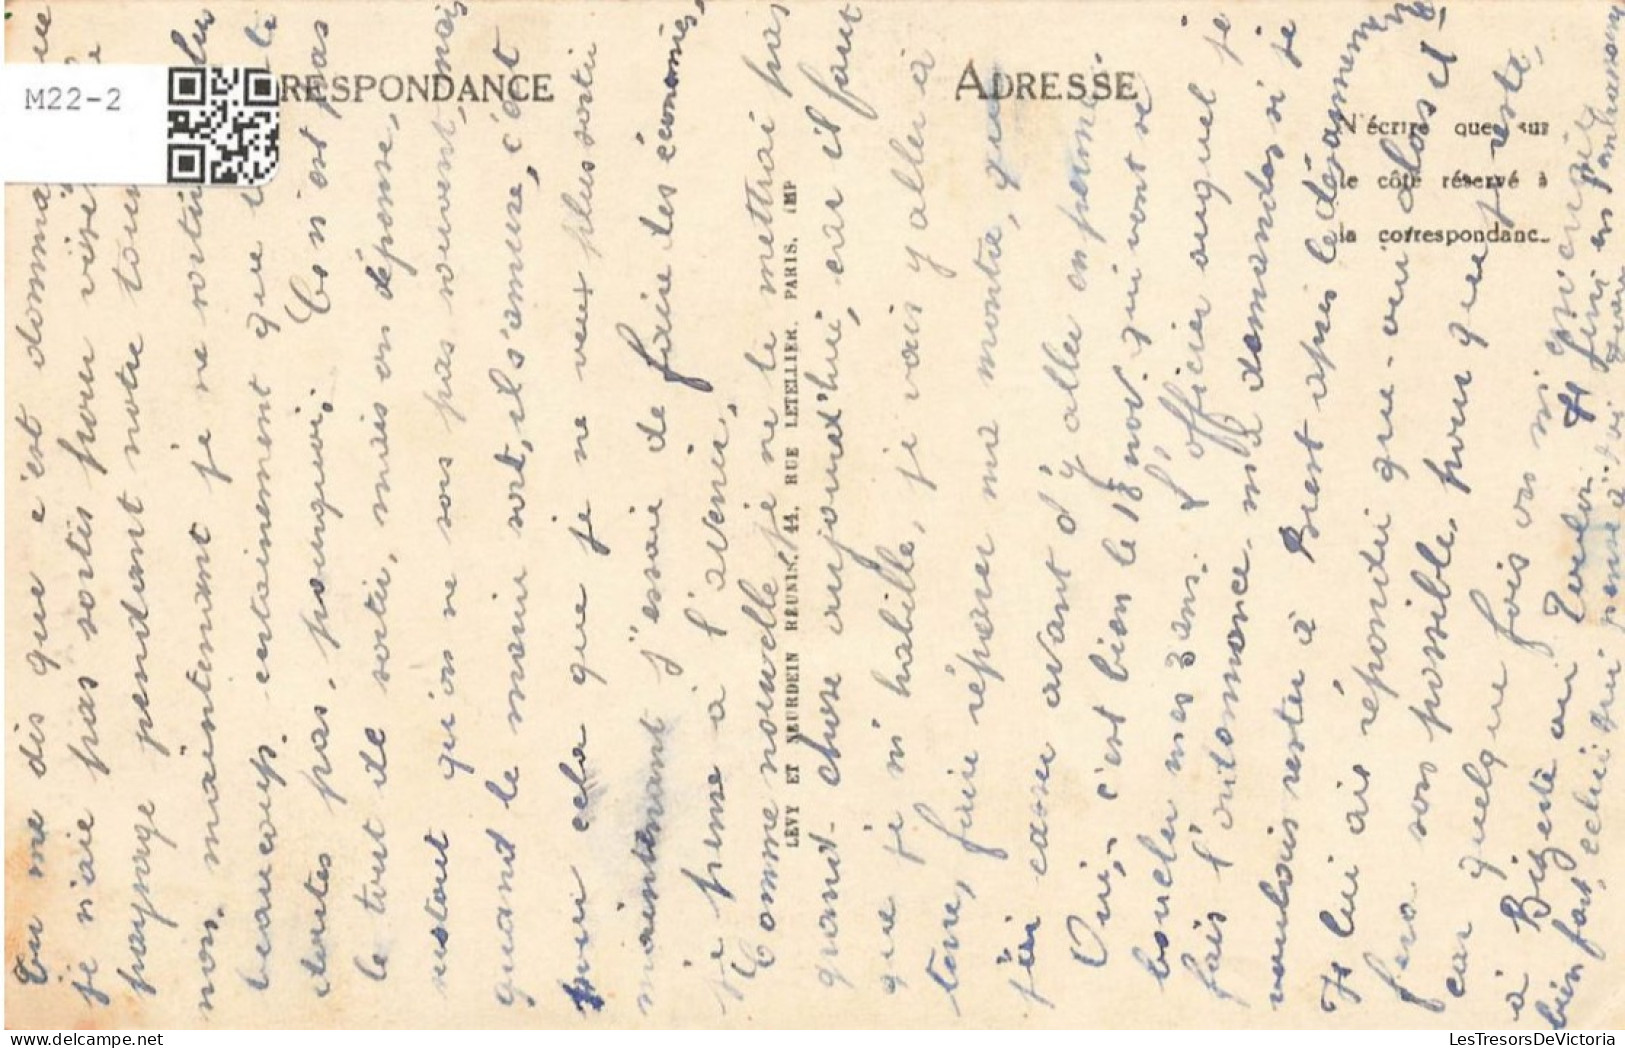 M22-2
RESPONDANCE
ADRESSE
N'écrire que sur
le côté réservé à
la correspondance
LÉVY ET NEURDEIN RÉUNIS, 44, RUE LETELLIER, PARIS. IMP
Tu me dis que c'est domma
je n'aie pas sortis pour visi
paysage pendent notre
nos. maintenant je ne
beaucoup. certainement que
toutes pas, pourquoi; Ce n'est pas
le tout de sortir, mais on dépense,
surtout qu'on ne sors pas souvent, mais
quand le marin sort, il s'amuse, c'est
pour cela que je ne veux plus sortir
maintenant j'essaie de faire des économies,
je pense à l'avenir,
Comme nouvelle je ne te mettrai pas
grand-chose aujourd'hui, car il faut
que je m'habille, je vais y aller à
terre, faire réparer ma montre, que
j'ai casser avant d'y aller en perme.
Oui, c'est bien le 18 nov. qui vont se
boucler mes 3 ans. L'officier auquel je
fais l'ordonnance. m'a demandes si je
voulais rester à Brest apres le désarmement
Je lui ais répondu que-oui alors il
fera son possible, pour que j'y reste,
car quelque fois on m'enverrait
à Bizerte ou Toulon. Je fini en
bien fort, celui qui pense à toi
LesTresorsDeVictoria